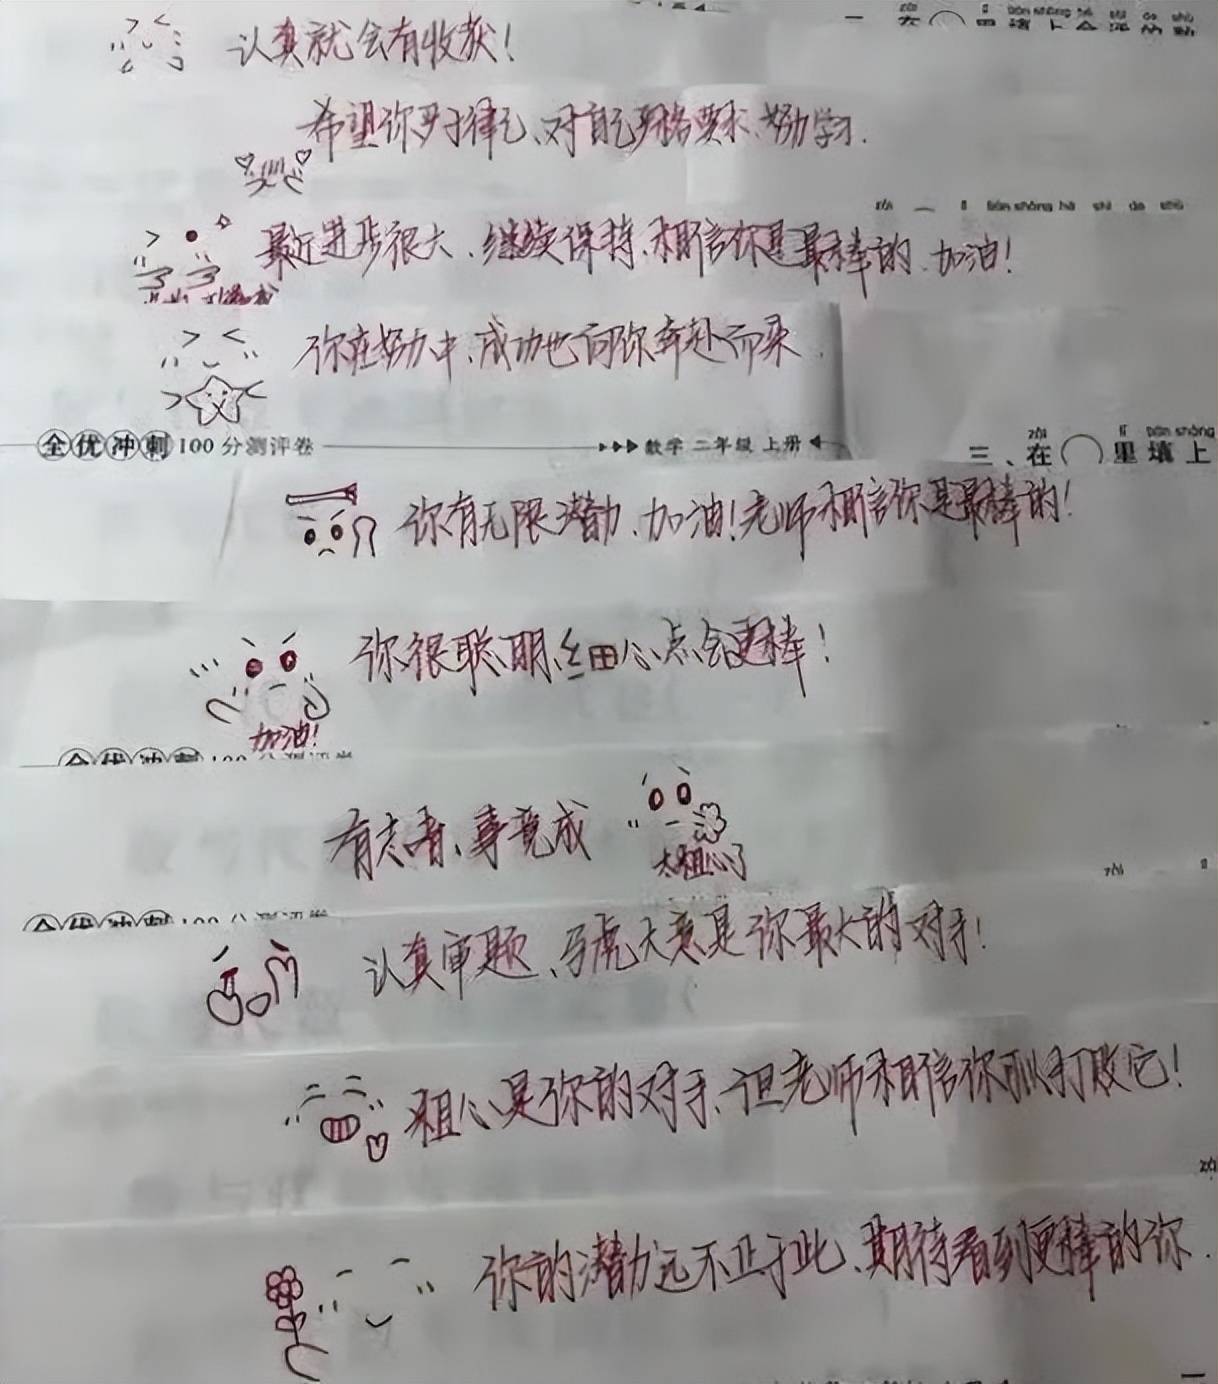 认真就会有收获!
希望你严于律己、对自己严格要求、努力学习.
最近进步很大、继续保持、相信你是最棒的、加油!
你在努力中、成功也向你奔赴而来.
全优冲刺100分测评卷 数学 二年级 上册 三、在 里填上
zài lǐ tián shàng
你有无限潜力、加油!老师相信你是最棒的!
你很聪明、细心点会更棒!
加油!
有志者、事竟成
太粗心了
认真审题、马虎大意是你最大的对手!
粗心是你的对手、但老师相信你可以打败它!
你的潜力远不止于此、期待看到更棒的你.